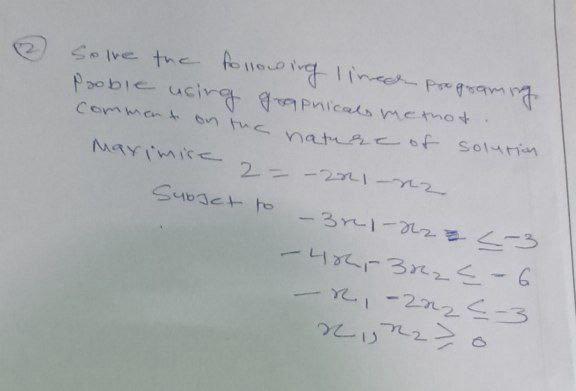 ② Solve the following linear programing
Proble using graphicals method.
Comment on the nature of solution
Maximise
Z = -2x1-x2
Subject to
-3x1-x2 ≤-3
-4x1-3x2 ≤ -6
-x1 -2x2 ≤-3
x1, x2 ≥ 0